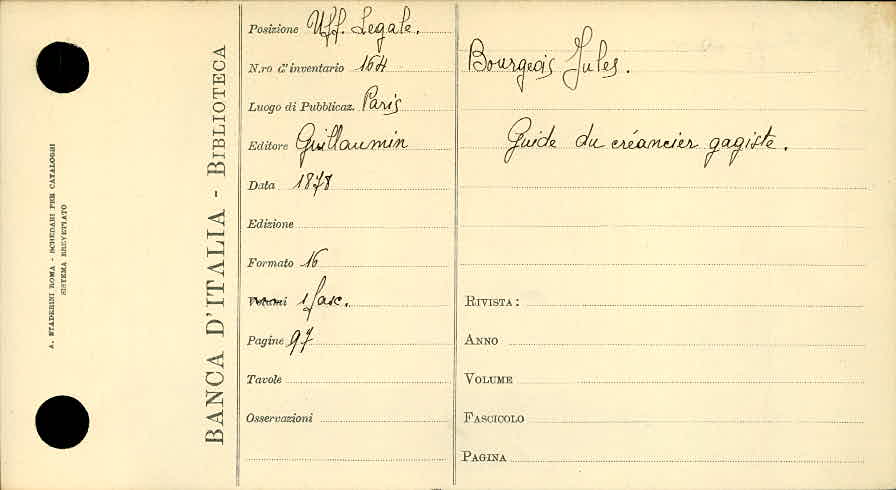 A. STADERINI ROMA - SCHEDARI PER CATALOGHI
SISTEMA BREVETTATO
BANCA D'ITALIA - BIBLIOTECA
Posizione Uff. Legale.
N.ro d'inventario 164
Luogo di Pubblicaz. Paris
Editore Guillaumin
Data 1878
Edizione
Formato 16
Volumi 1 fasc.
Pagine 97
Tavole
Osservazioni
Bourgeois Jules.
Guide du créancier gagiste.
RIVISTA:
ANNO
VOLUME
FASCICOLO
PAGINA